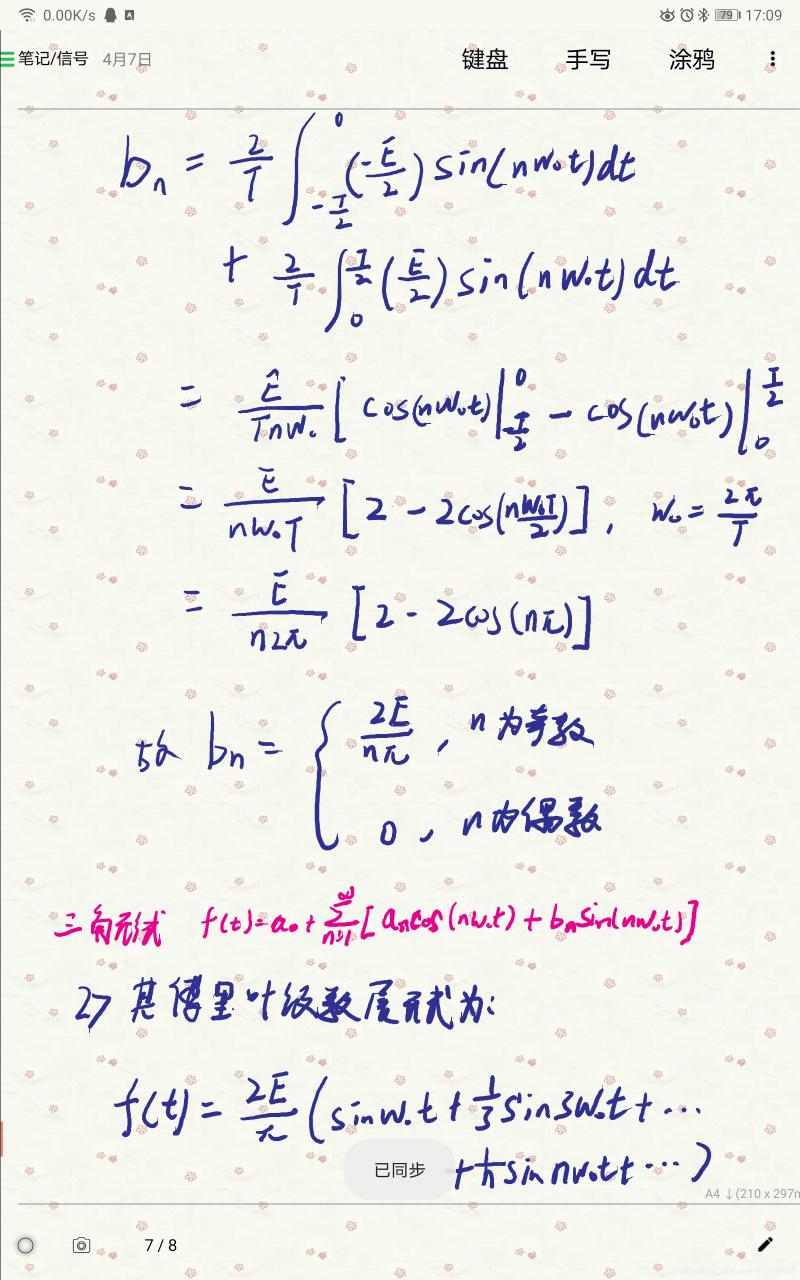 0.00K/s 79 17:09
笔记/信号 4月7日 键盘 手写 涂鸦
bₙ = 2/T ∫_{-T/2}^{0} (-E/2) sin(nw₀t)dt
+ 2/T ∫_{0}^{T/2} (E/2) sin(nw₀t)dt
= E/(Tnw₀) [cos(nw₀t)|_{-T/2}^{0} - cos(nw₀t)|_{0}^{T/2}
= E/(nw₀T) [2 - 2cos(nw₀T/2)], w₀ = 2π/T
= E/(n2π) [2 - 2cos(nπ)]
故 bₙ = { 2E/(nπ), n为奇数
0, n为偶数
三角形式 f(t)=a₀+∑_{n=1}^{∞}[aₙcos(nw₀t)+bₙsin(nw₀t)]
2> 其傅里叶级数展开式为:
f(t) = 2E/π (sinw₀t + 1/3 sin3w₀t + ···
已同步 + 1/n sin nw₀t + ···)
A4 ↓(210 x 297m
7 / 8